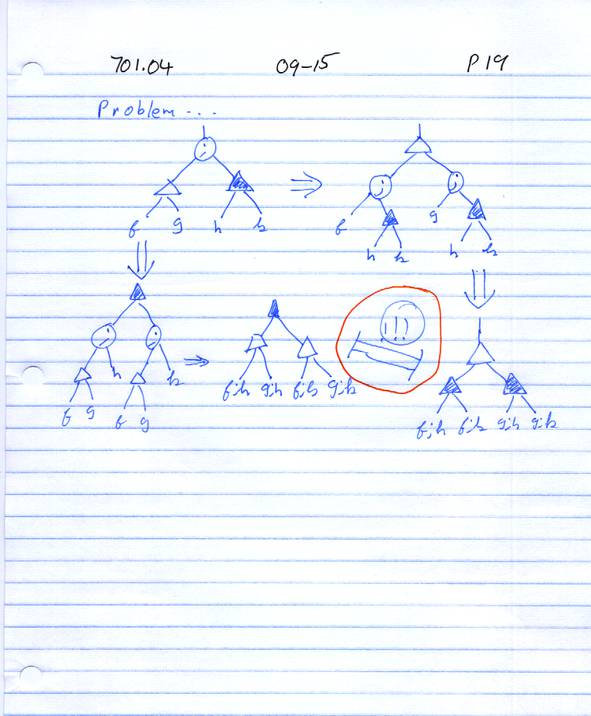 701.04 09-15 P 19
Problem ...
;
;
;
f g h k
f g
h k h k
;
;
!!!
h k
f g f g
f;h g;h f;k g;k
f;h f;k g;h g;k